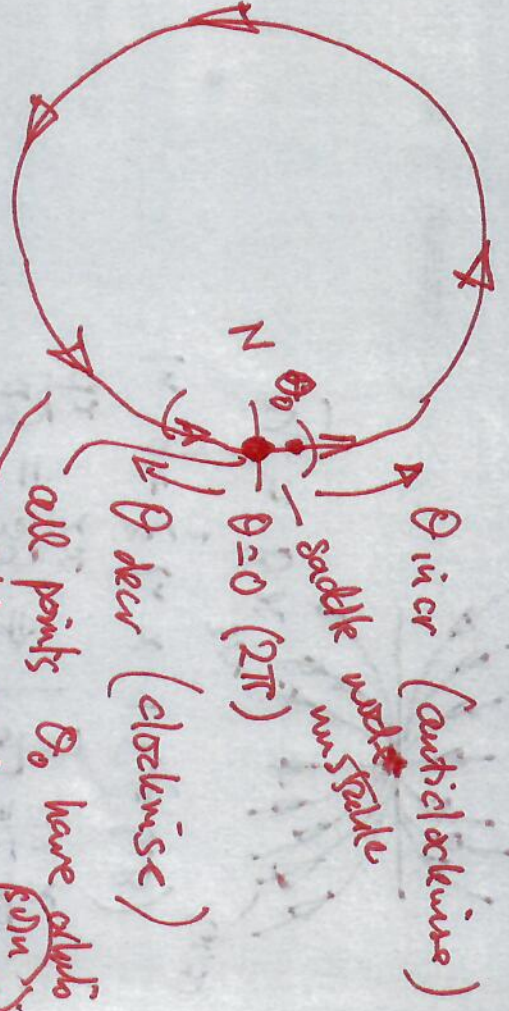 θ incr (anticlockwise)
saddle node
unstable
θ=0 (2π)
N
θ₀
θ decr (clockwise)
all points θ₀ have
soln